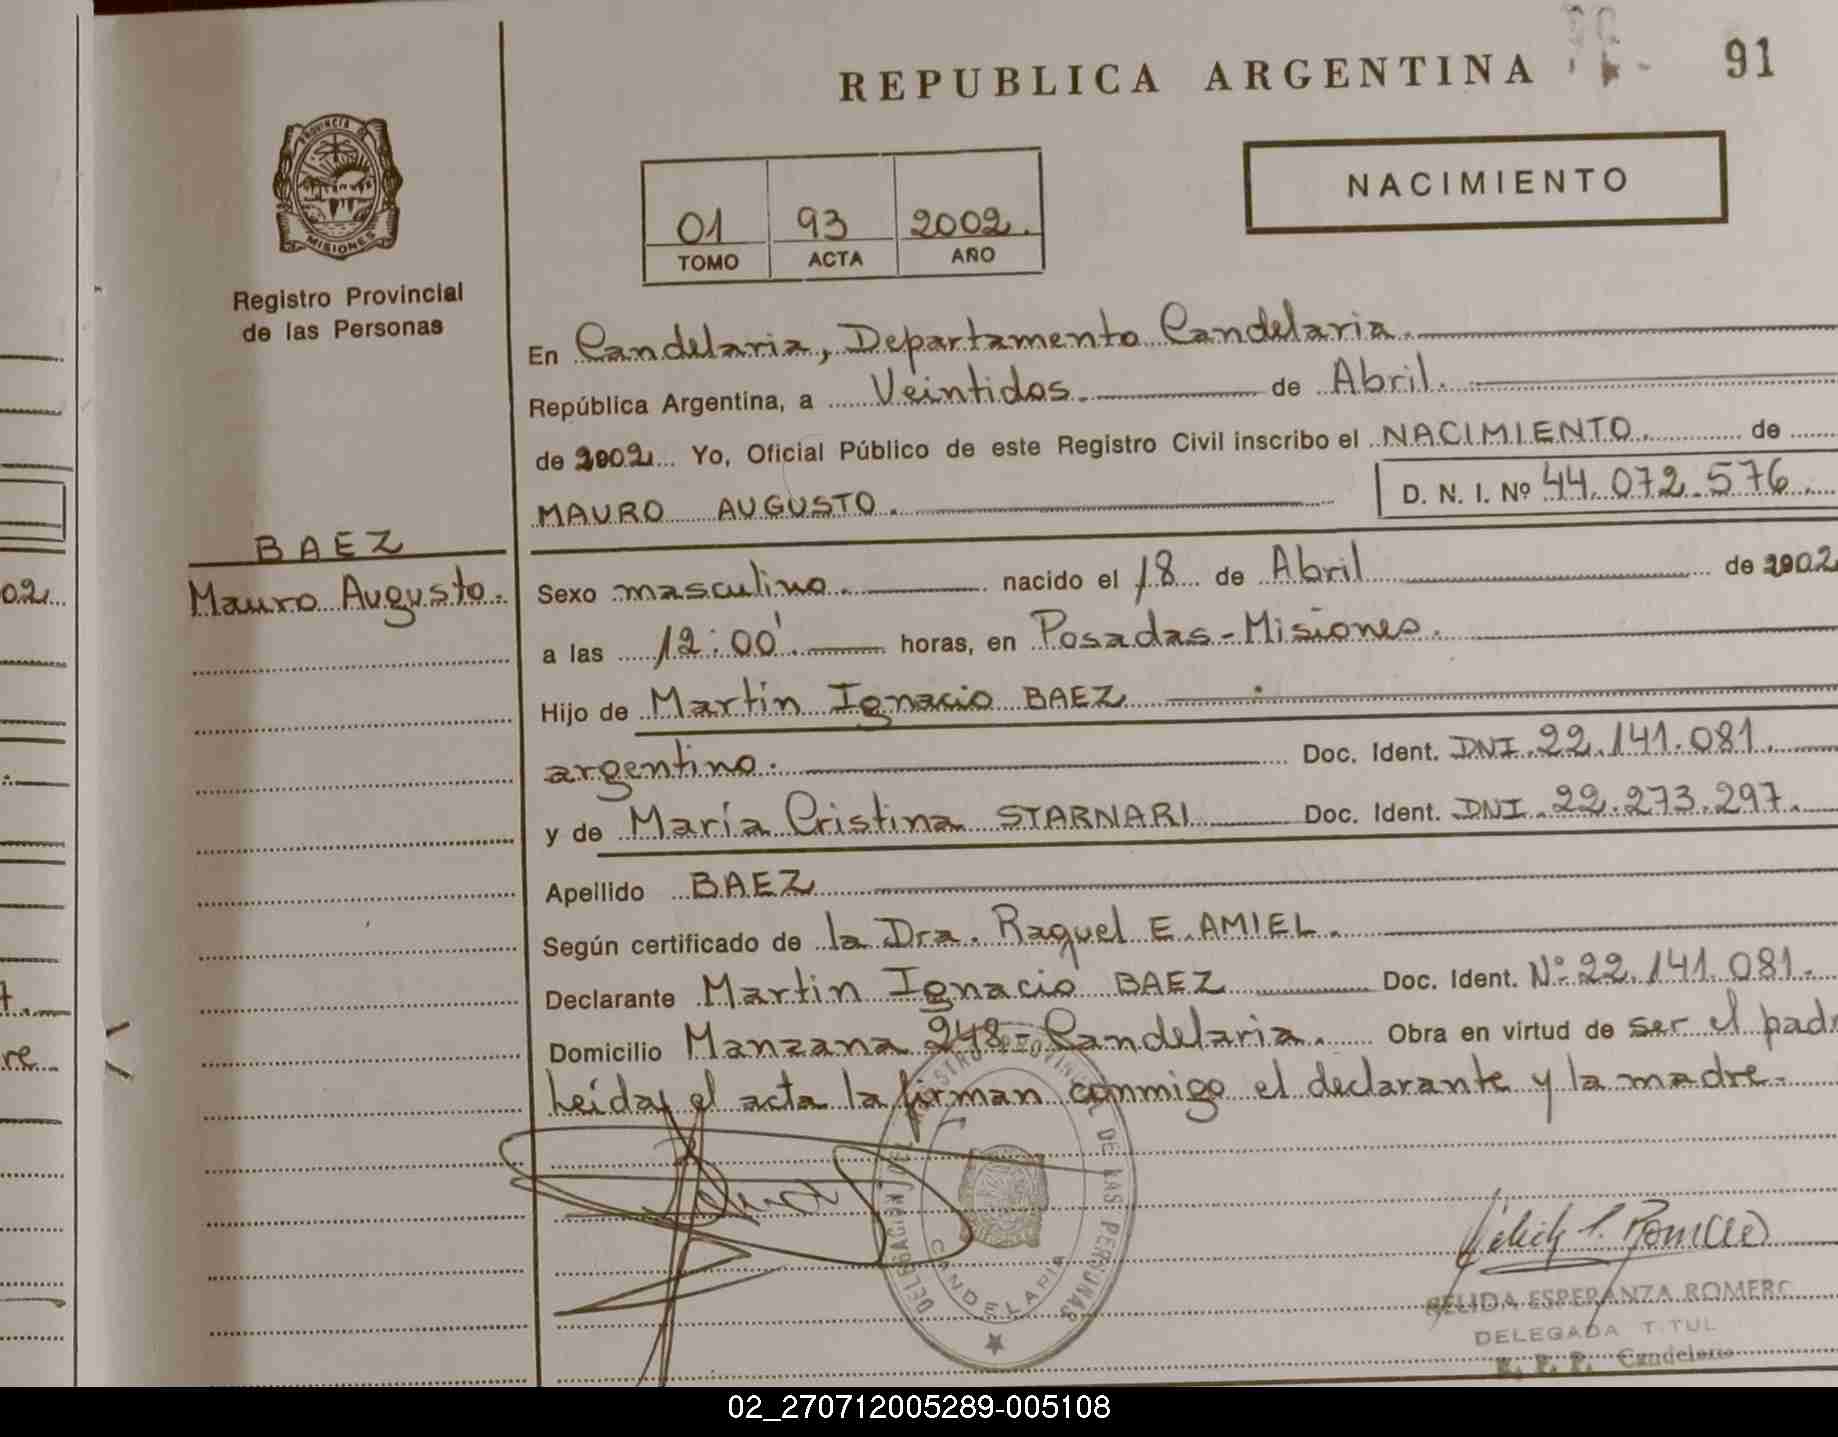 REPUBLICA ARGENTINA
91
PROVINCIA DE
MISIONES
Registro Provincial
de las Personas
NACIMIENTO
01 93 2002.
TOMO ACTA AÑO
En Candelaria, Departamento Candelaria.
República Argentina, a Veintidos. de Abril.
de 2002 Yo, Oficial Público de este Registro Civil inscribo el NACIMIENTO. de
MAURO AUGUSTO. D. N. I. Nº 44.072.576.
BAEZ
Mauro Augusto.
02
Sexo masculino. nacido el 18 de Abril de 2002
a las 12:00'. horas, en Posadas-Misiones.
Hijo de Martin Ignacio BAEZ
argentino. Doc. Ident. DNI. 22.141.081.
y de María Cristina STARNARI Doc. Ident. DNI. 22.273.297.
Apellido BAEZ
Según certificado de la Dra. Raquel E. AMIEL.
Declarante Martin Ignacio BAEZ Doc. Ident. Nº 22.141.081.
re
Domicilio Manzana 248- Candelaria. Obra en virtud de ser el padr
Leída el acta la firman conmigo el declarante y la madre.
DE LAS PERSONAS
DELEGACION
CANDELARIA
ESPERANZA ROMERO
DELEGADA TITUL
R. P. P. Candelaria
02_270712005289-005108